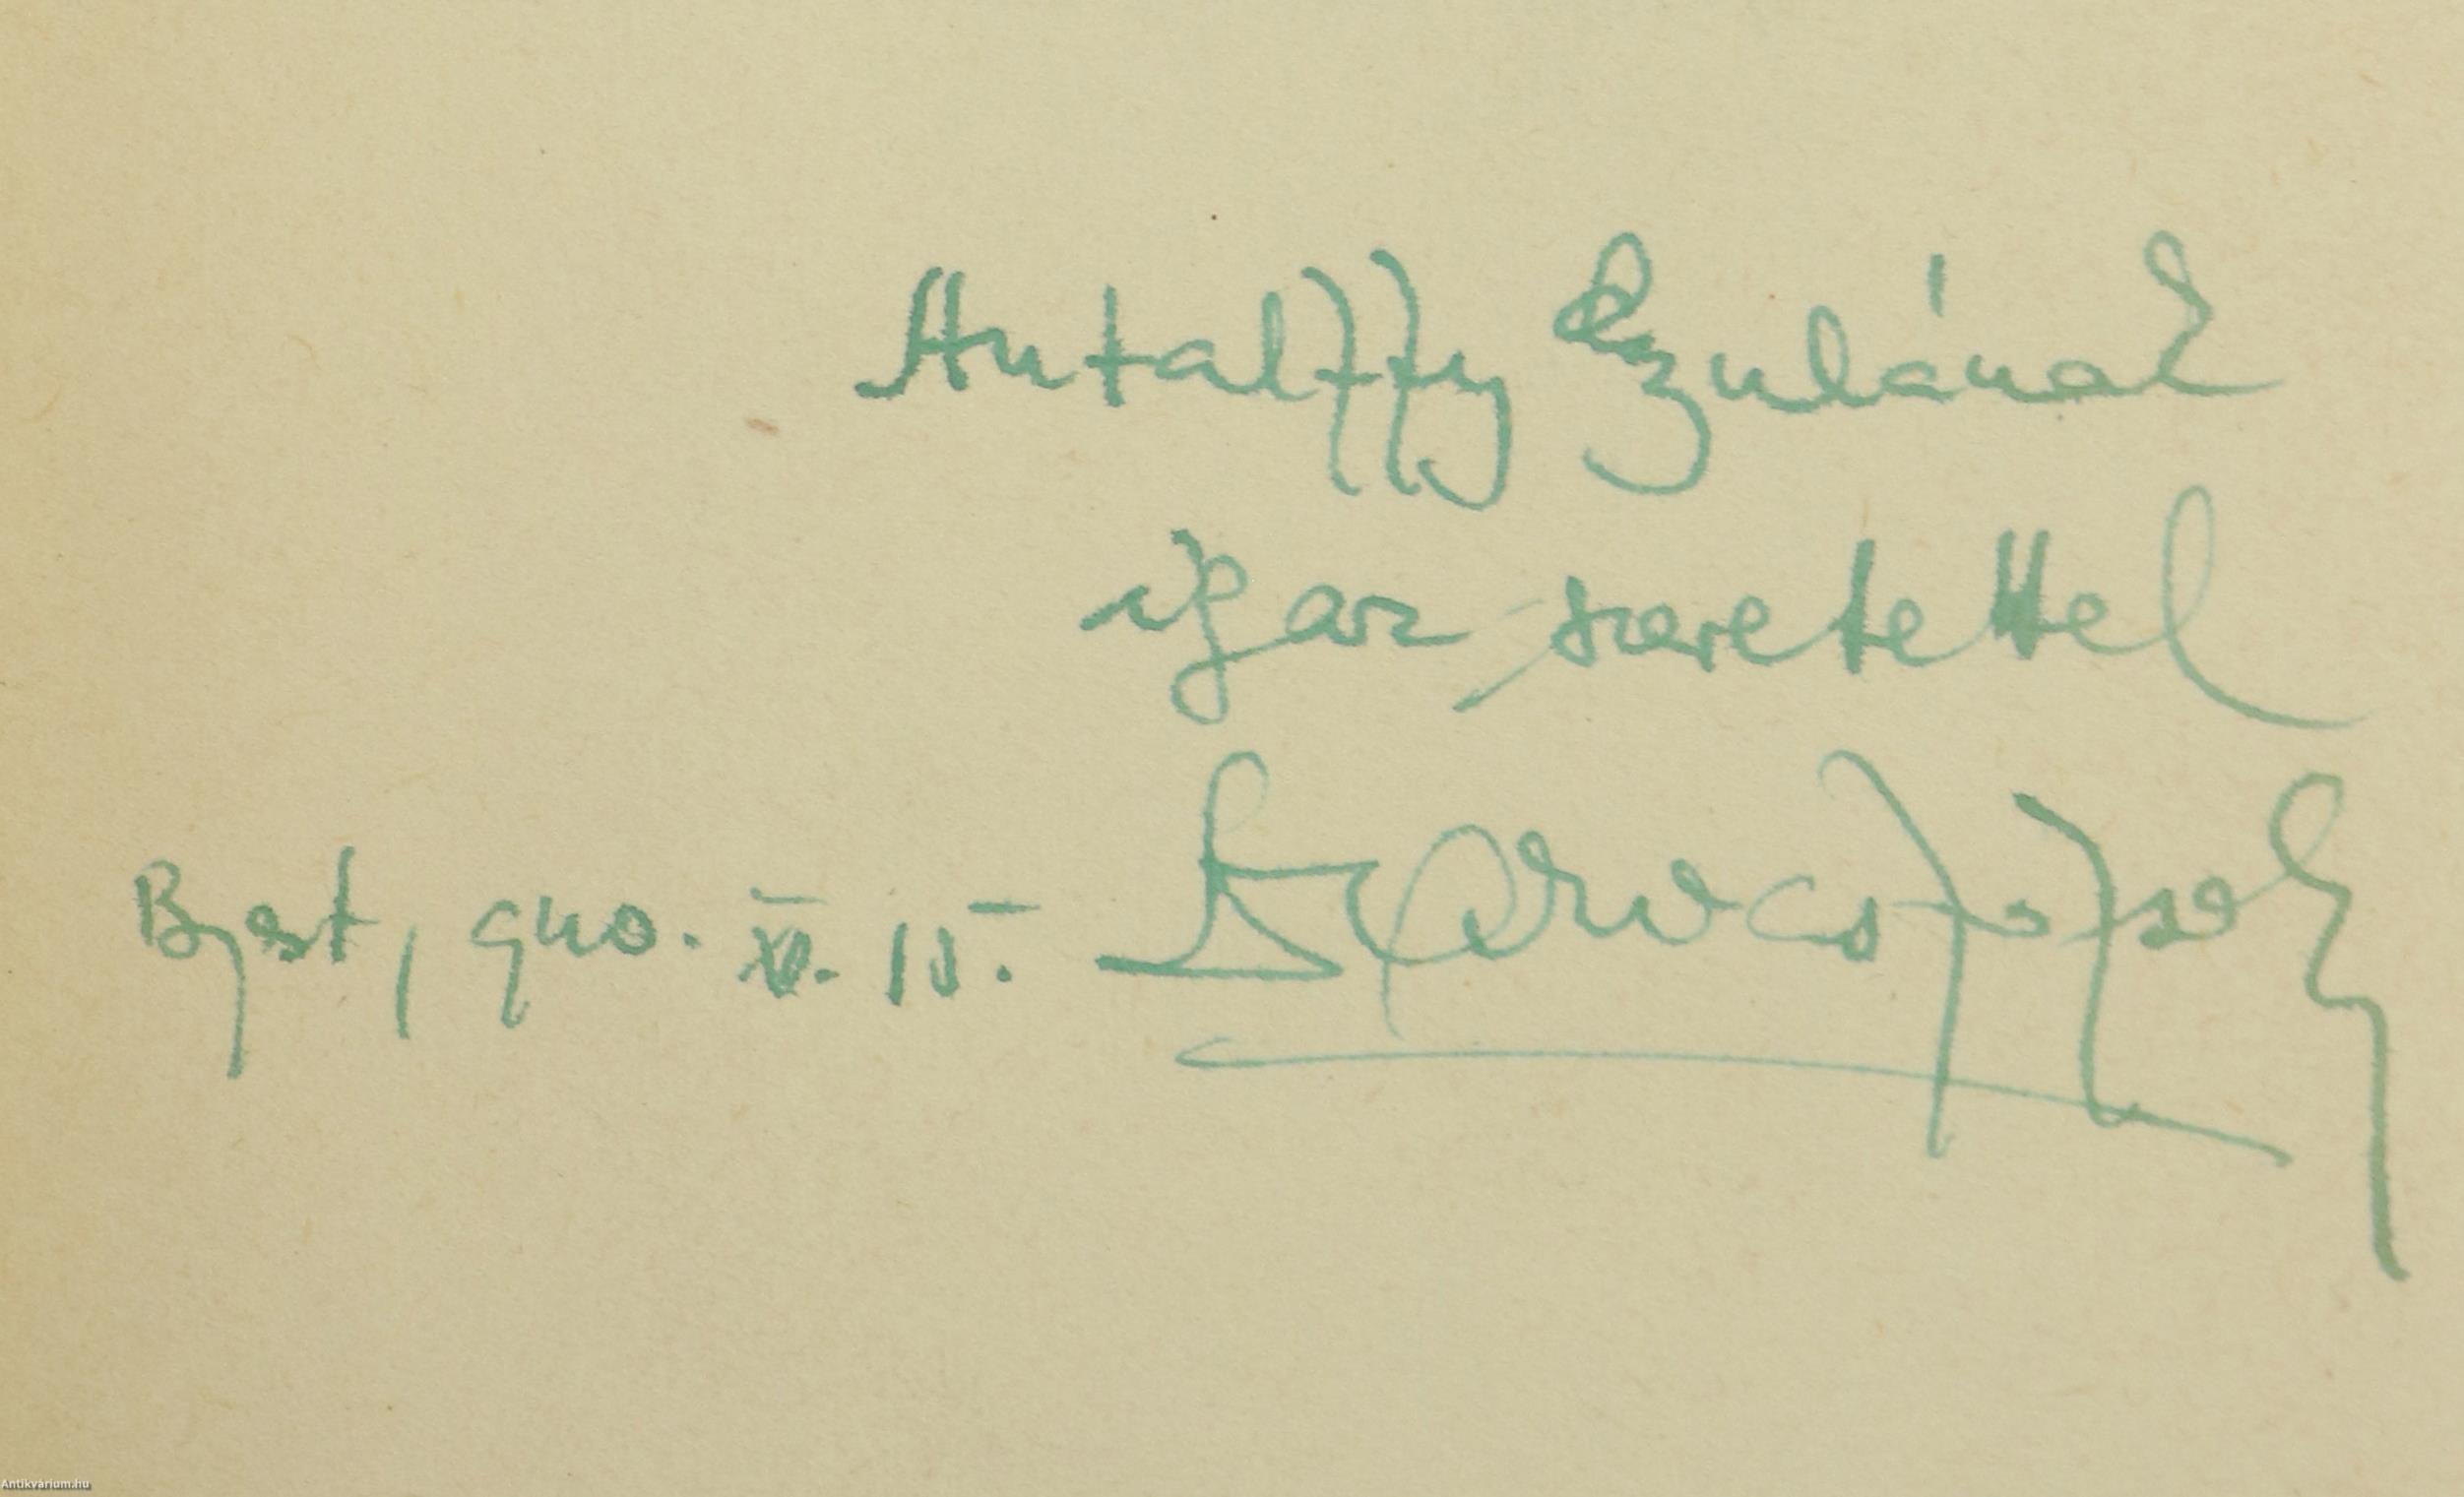 Antalffy Gyulának
igaz szeretettel
Bpest, 940. XI. 15. Darvas József
Antikvarium.hu